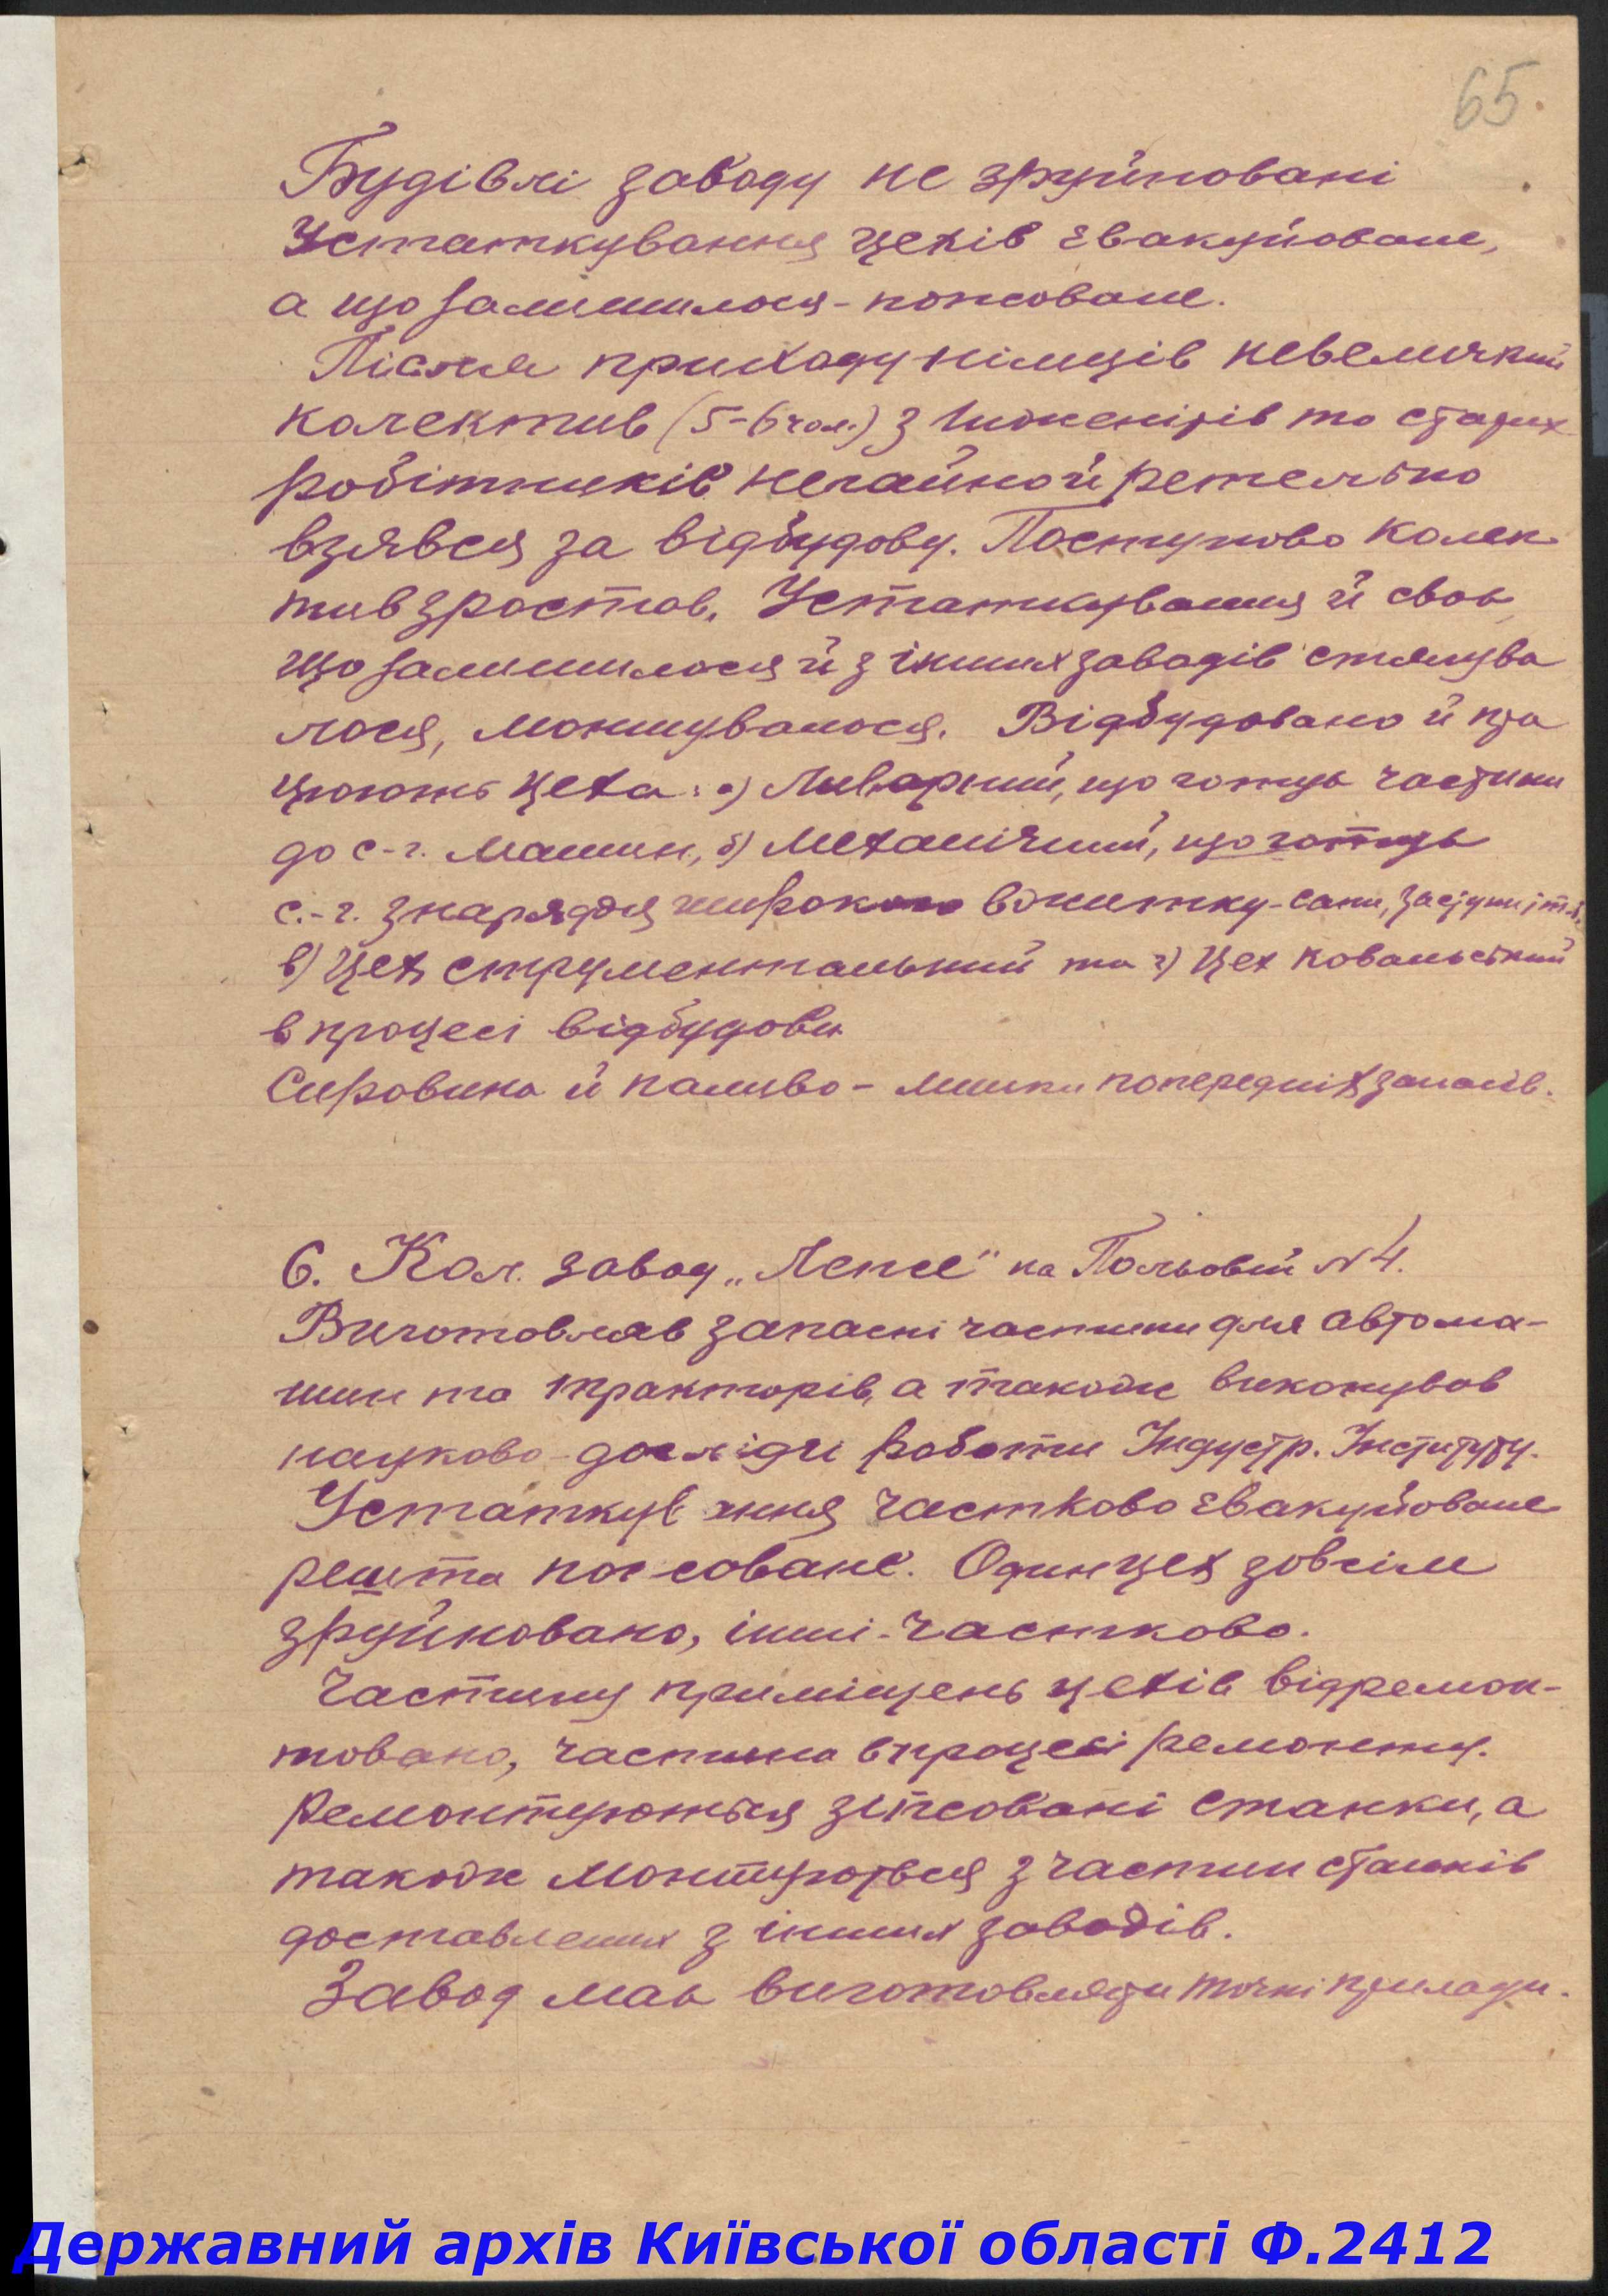 65.
Будівлі заводу не зруйновані
Устаткування цехів евакуйоване,
а що залишилося - попсоване.
Після приходу німців невеличкий
колектив (5-6 чол.) з інженірів та старих
робітників негайно й ретельно
взявся за відбудову. Поступово колек-
тив зростав. Устаткування й своє,
що залишилося й з інших заводів стягува
лося, монтувалося. Відбудовано й пра
цюють цеха: а) Ливарний, що готує частини
до с-г. машин, б) Механічний, що готує
с.-г. знаряддя широкого вжитку - сапи, заступи і т.д.
в) Цех струментальний та г) Цех ковальський
в процесі відбудови
Сировина й паливо - лишки попередніх запасів.
6. Кол. завод „Лепсе" на Польовій № 4.
Виготовляв запасні частини для автома-
шин та тракторів, а також виконував
науково-дослідчі роботи Індустр. Інституту.
Устаткування частково евакуйоване
решта попсоване. Один цех зовсім
зруйновано, інші - частково.
Частину приміщень цехів відремон-
товано, частина в процесі ремонту.
Ремонтуються зіпсовані станки, а
також монтуються з частин станків
доставлених з інших заводів.
Завод має виготовляти точні прилади.
Державний архів Київської області Ф.2412